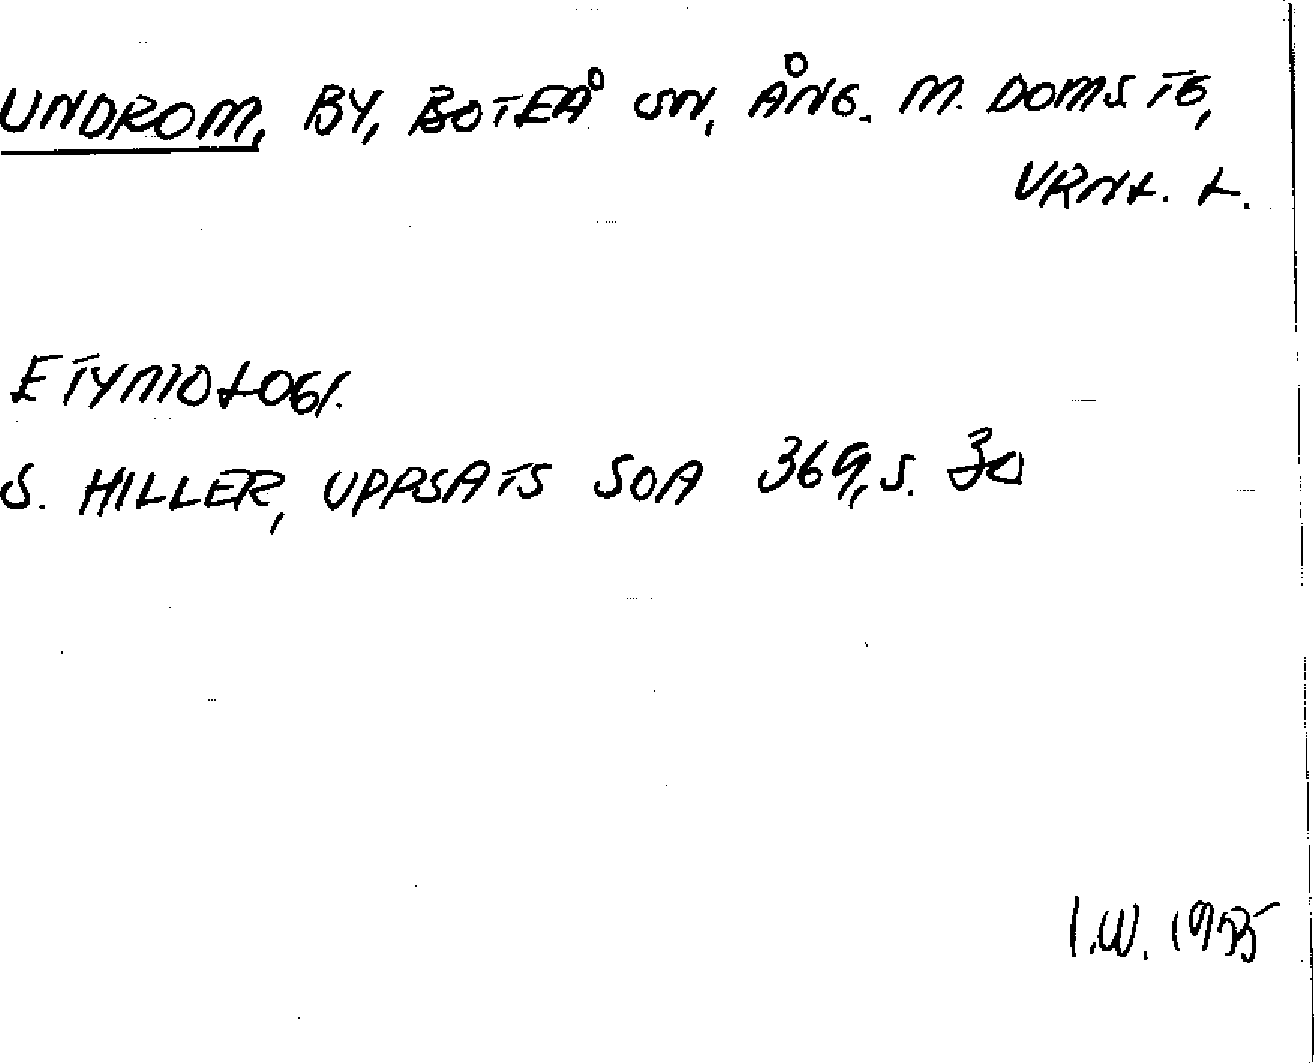 UNDROM, BY, BOTEÅ SN, ÅNG. M. DOMSTG,
VRNL. L.
ETYMOLOGI.
S. HILLER, UPPSATS SOA 369, S. 30
I.W.